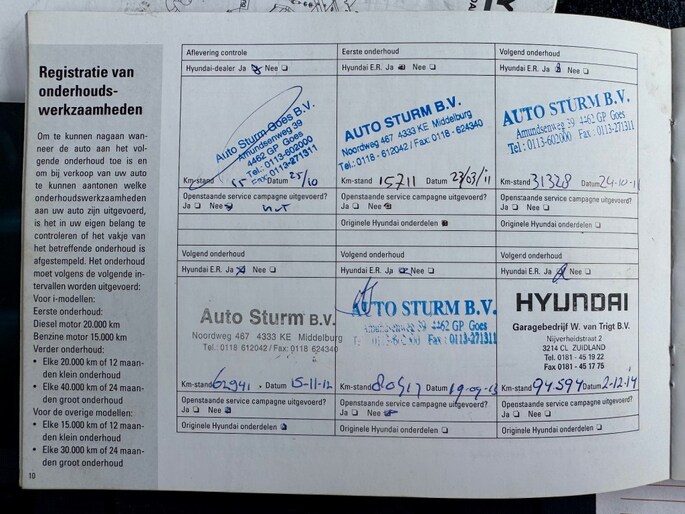 Registratie van
onderhouds-
werkzaamheden
Om te kunnen nagaan wan-
neer de auto aan het vol-
gende onderhoud toe is en
om bij verkoop van uw auto
te kunnen aantonen welke
onderhoudswerkzaamheden
aan uw auto zijn uitgevoerd,
is het in uw eigen belang te
controleren of het vakje van
het betreffende onderhoud is
afgestempeld. Het onderhoud
moet volgens de volgende in-
tervallen worden uitgevoerd:
Voor i-modellen:
Eerste onderhoud:
Diesel motor 20.000 km
Benzine motor 15.000 km
Verder onderhoud:
• Elke 20.000 km of 12 maan-
den klein onderhoud
• Elke 40.000 km of 24 maan-
den groot onderhoud
Voor de overige modellen:
• Elke 15.000 km of 12 maan-
den klein onderhoud
• Elke 30.000 km of 24 maan-
den groot onderhoud
10
Aflevering controle
Hyundai-dealer Ja Nee
Auto Sturm Goes B.V.
Amundsenweg 39
4462 GP Goes
Tel.: 0113-602000
Fax: 0113-271311
Km-stand 55 Datum 25/10
Openstaande service campagne uitgevoerd?
Ja Nee
Eerste onderhoud
Hyundai E.R. Ja Nee
AUTO STURM B.V.
Noordweg 467 4333 KE Middelburg
Tel.: 0118 - 612042 / Fax: 0118 - 624340
Km-stand 15711 Datum 23/03/11
Openstaande service campagne uitgevoerd?
Ja Nee
Originele Hyundai onderdelen
Volgend onderhoud
Hyundai E.R. Ja Nee
AUTO STURM B.V.
Amundsenweg 39 4462 GP Goes
Tel.: 0113-602000 Fax: 0113-271311
Km-stand 31328 Datum 24-10-11
Openstaande service campagne uitgevoerd?
Ja Nee
Originele Hyundai onderdelen
Volgend onderhoud
Hyundai E.R. Ja Nee
Auto Sturm B.V.
Noordweg 467 4333 KE Middelburg
Tel.: 0118 612042 / Fax: 0118 624340
Km-stand 62941 Datum 15-11-12
Openstaande service campagne uitgevoerd?
Ja Nee
Originele Hyundai onderdelen
Volgend onderhoud
Hyundai E.R. Ja Nee
AUTO STURM B.V.
Amundsenweg 39 4462 GP Goes
Fax : 0113-271311
Km-stand Datum
Openstaande service campagne uitgevoerd?
Ja Nee
Originele Hyundai onderdelen
Volgend onderhoud
Hyundai E.R. Ja Nee
HYUNDAI
Garagebedrijf W. van Trigt B.V.
Nijverheidstraat 2
3214 CL ZUIDLAND
Tel. 0181 - 45 19 22
Fax 0181 - 45 17 75
Km-stand 94594 Datum 2-12-14
Openstaande service campagne uitgevoerd?
Ja Nee
Originele Hyundai onderdelen